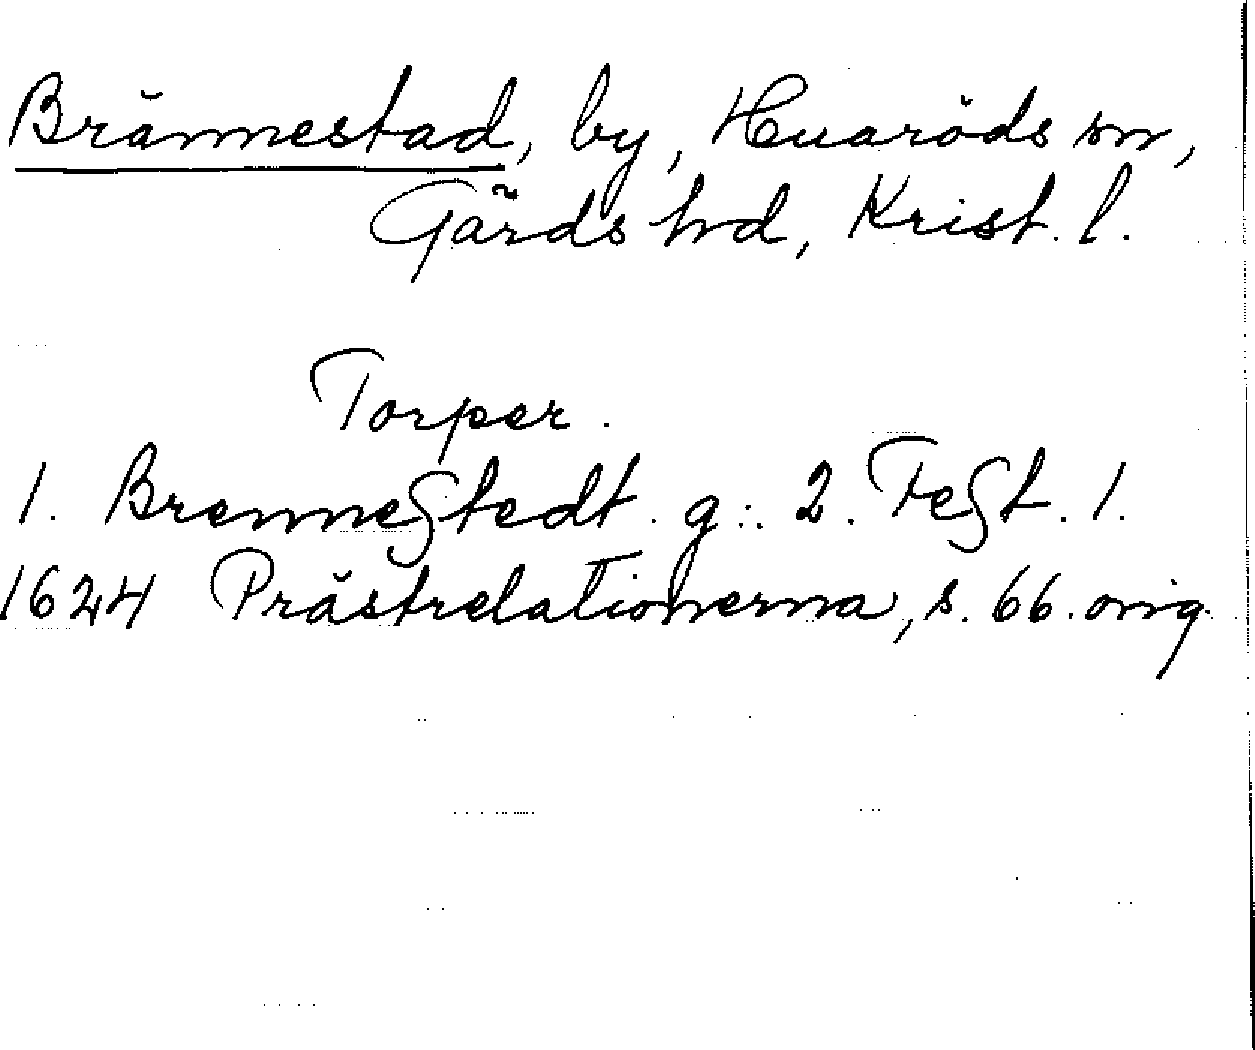 Brännestad, by, Huaröds sn,
Gärds hrd, Krist. l.
Torper.
1. Brenneſtedt. g:. 2. Feſt. 1.
1624 Prästrelationerna, s. 66. orig.